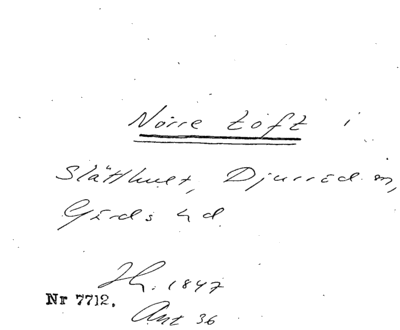 Nörre toft i
Slätthult, Djurröd sn,
Gärds hd
Lh. 1847
Nr 7712.
Ant 36